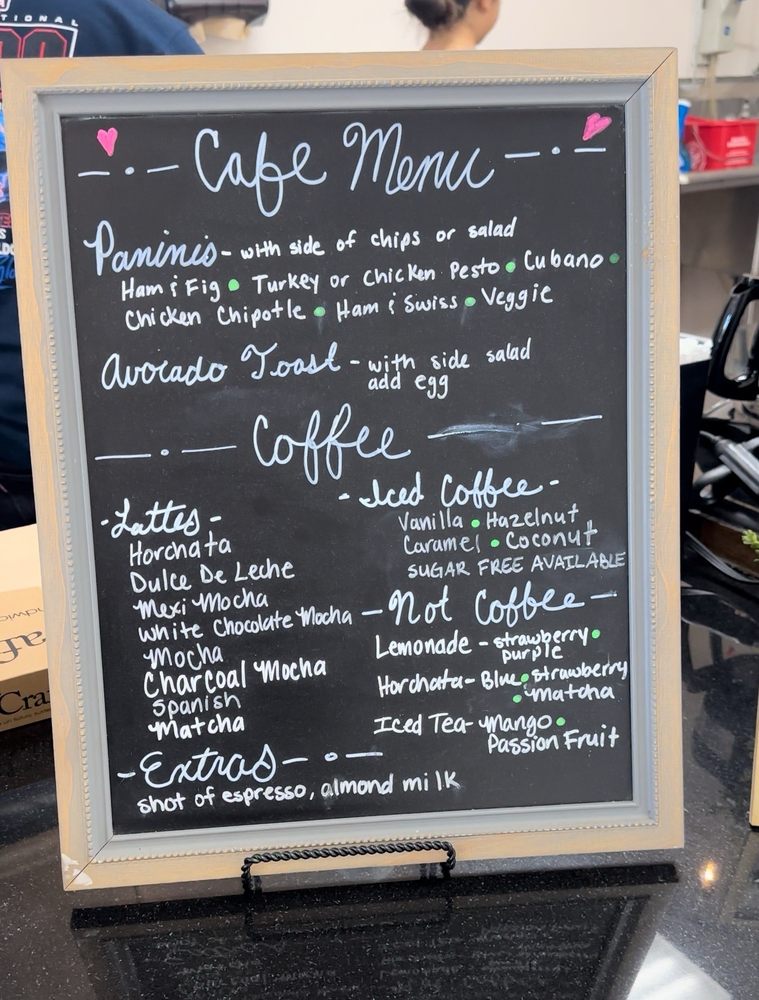 Cafe Menu
Paninis - with side of chips or salad
Ham & Fig • Turkey or Chicken Pesto • Cubano •
Chicken Chipotle • Ham & Swiss • Veggie
Avocado Toast - with side salad
add egg
Coffee
- Lattes -
Horchata
Dulce De Leche
Mexi Mocha
White Chocolate Mocha
Mocha
Charcoal Mocha
Spanish
Matcha
- Iced Coffee -
Vanilla • Hazelnut
Caramel • Coconut
SUGAR FREE AVAILABLE
- Not Coffee -
Lemonade - strawberry •
purple
Horchata - Blue • strawberry
• Matcha
Iced Tea - Mango •
Passion Fruit
- Extras -
shot of espresso, almond milk